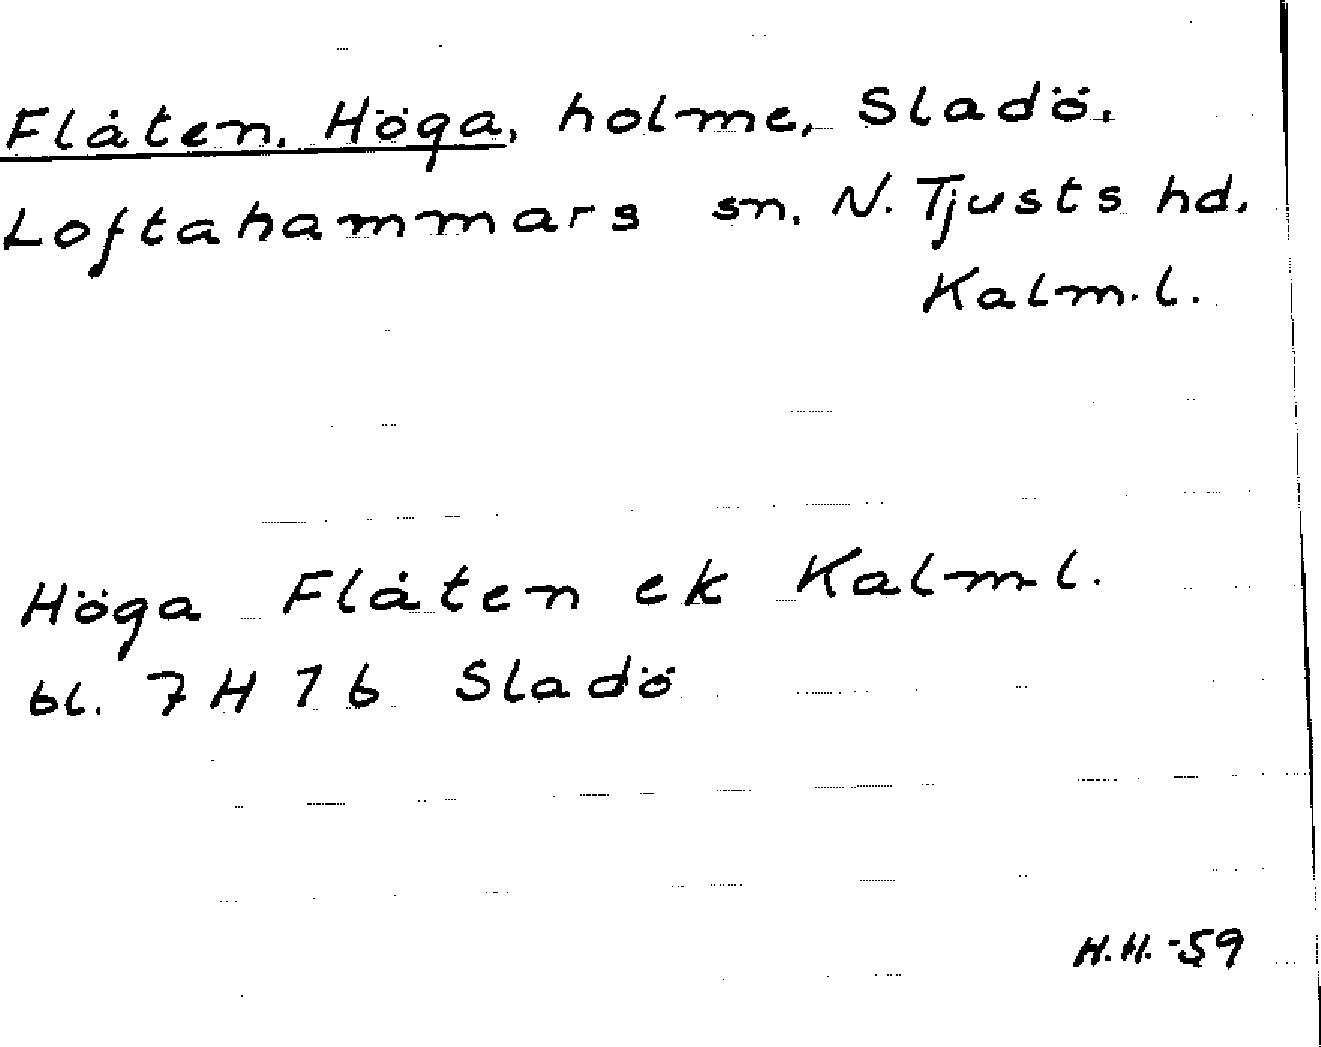 Flåten, Höga, holme, Sladö.
Loftahammars sn. N. Tjusts hd.
Kalm. l.
Höga Flåten ek Kalm l.
bl. 7 H 7 b Sladö
H.H. -59